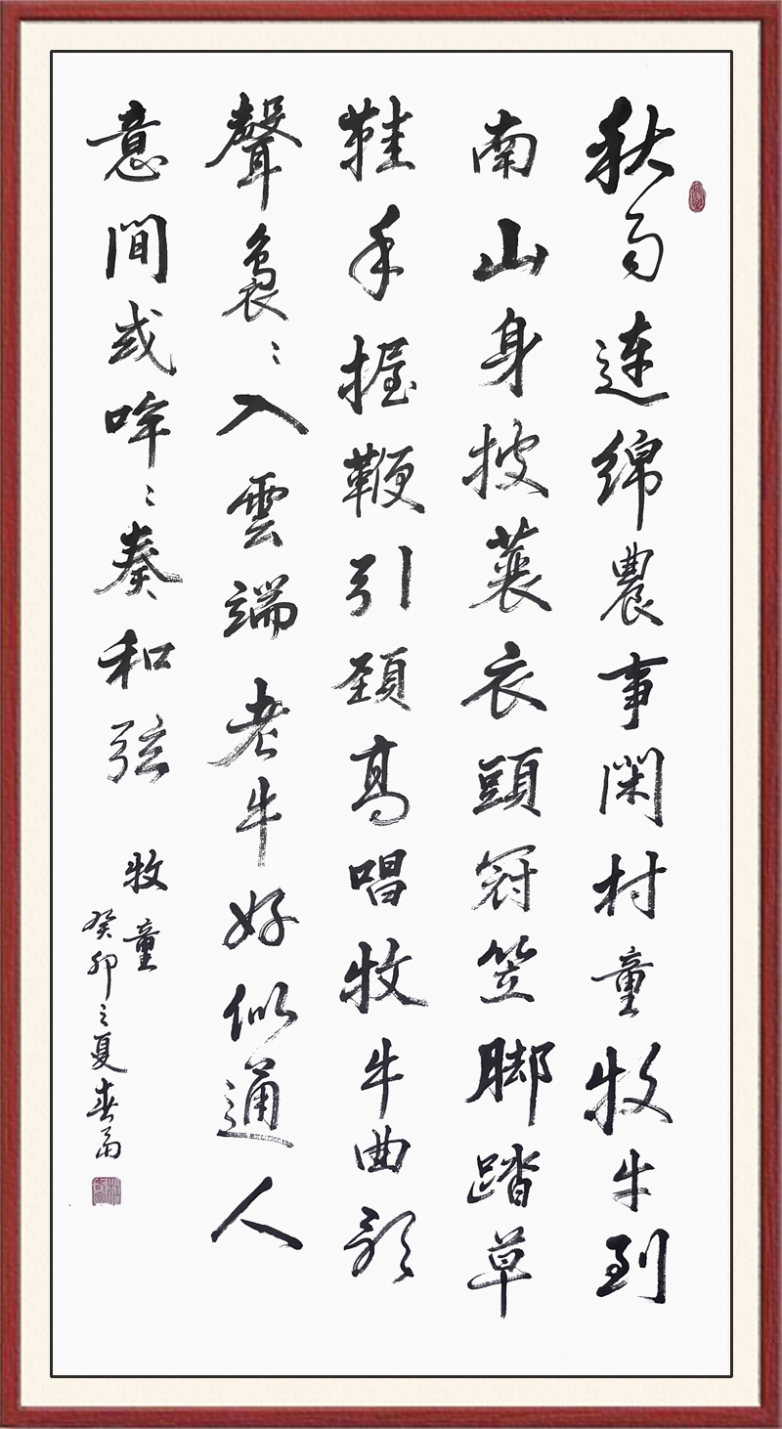 秋雨連綿農事閑村童牧牛到
南山身披蓑衣頭冠笠脚踏草
鞋手握鞭引頸高唱牧牛曲歌
聲裊〻入雲端老牛好似通人
意間或哞〻奏和弦
牧童
癸卯之夏春雨